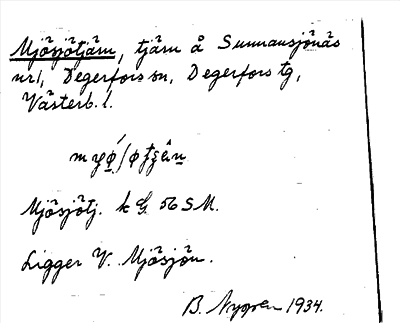 Mjösjötjärn, tjärn å Sunnansjönäs
nr 1, Degerfors sn, Degerfors tg,
Västerb. l.
Mjösjötj. k G. 56 SM.
Ligger V. Mjösjön.
B. Nygren 1934.